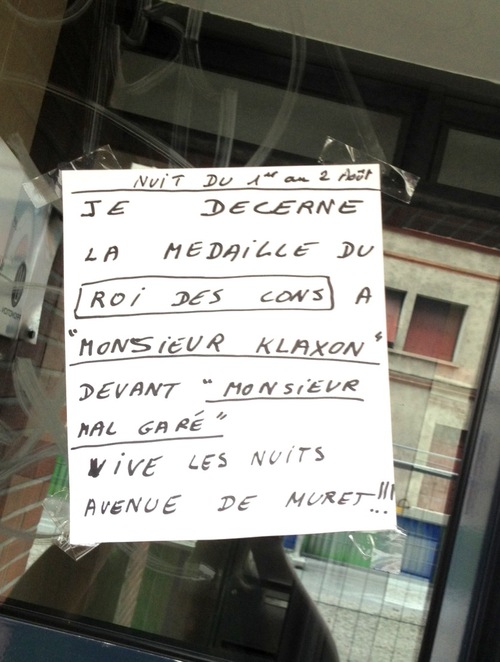 NUIT DU 1er au 2 Août
JE DECERNE
LA MEDAILLE DU
ROI DES CONS A
"MONSIEUR KLAXON"
DEVANT "MONSIEUR
MAL GARÉ"
VIVE LES NUITS
AVENUE DE MURET!!!